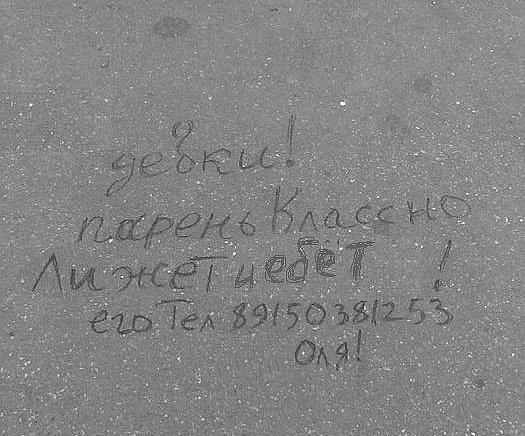 девки!
парень Классно
Лижет и ебёт !
его Тел 89150381253
Оля!